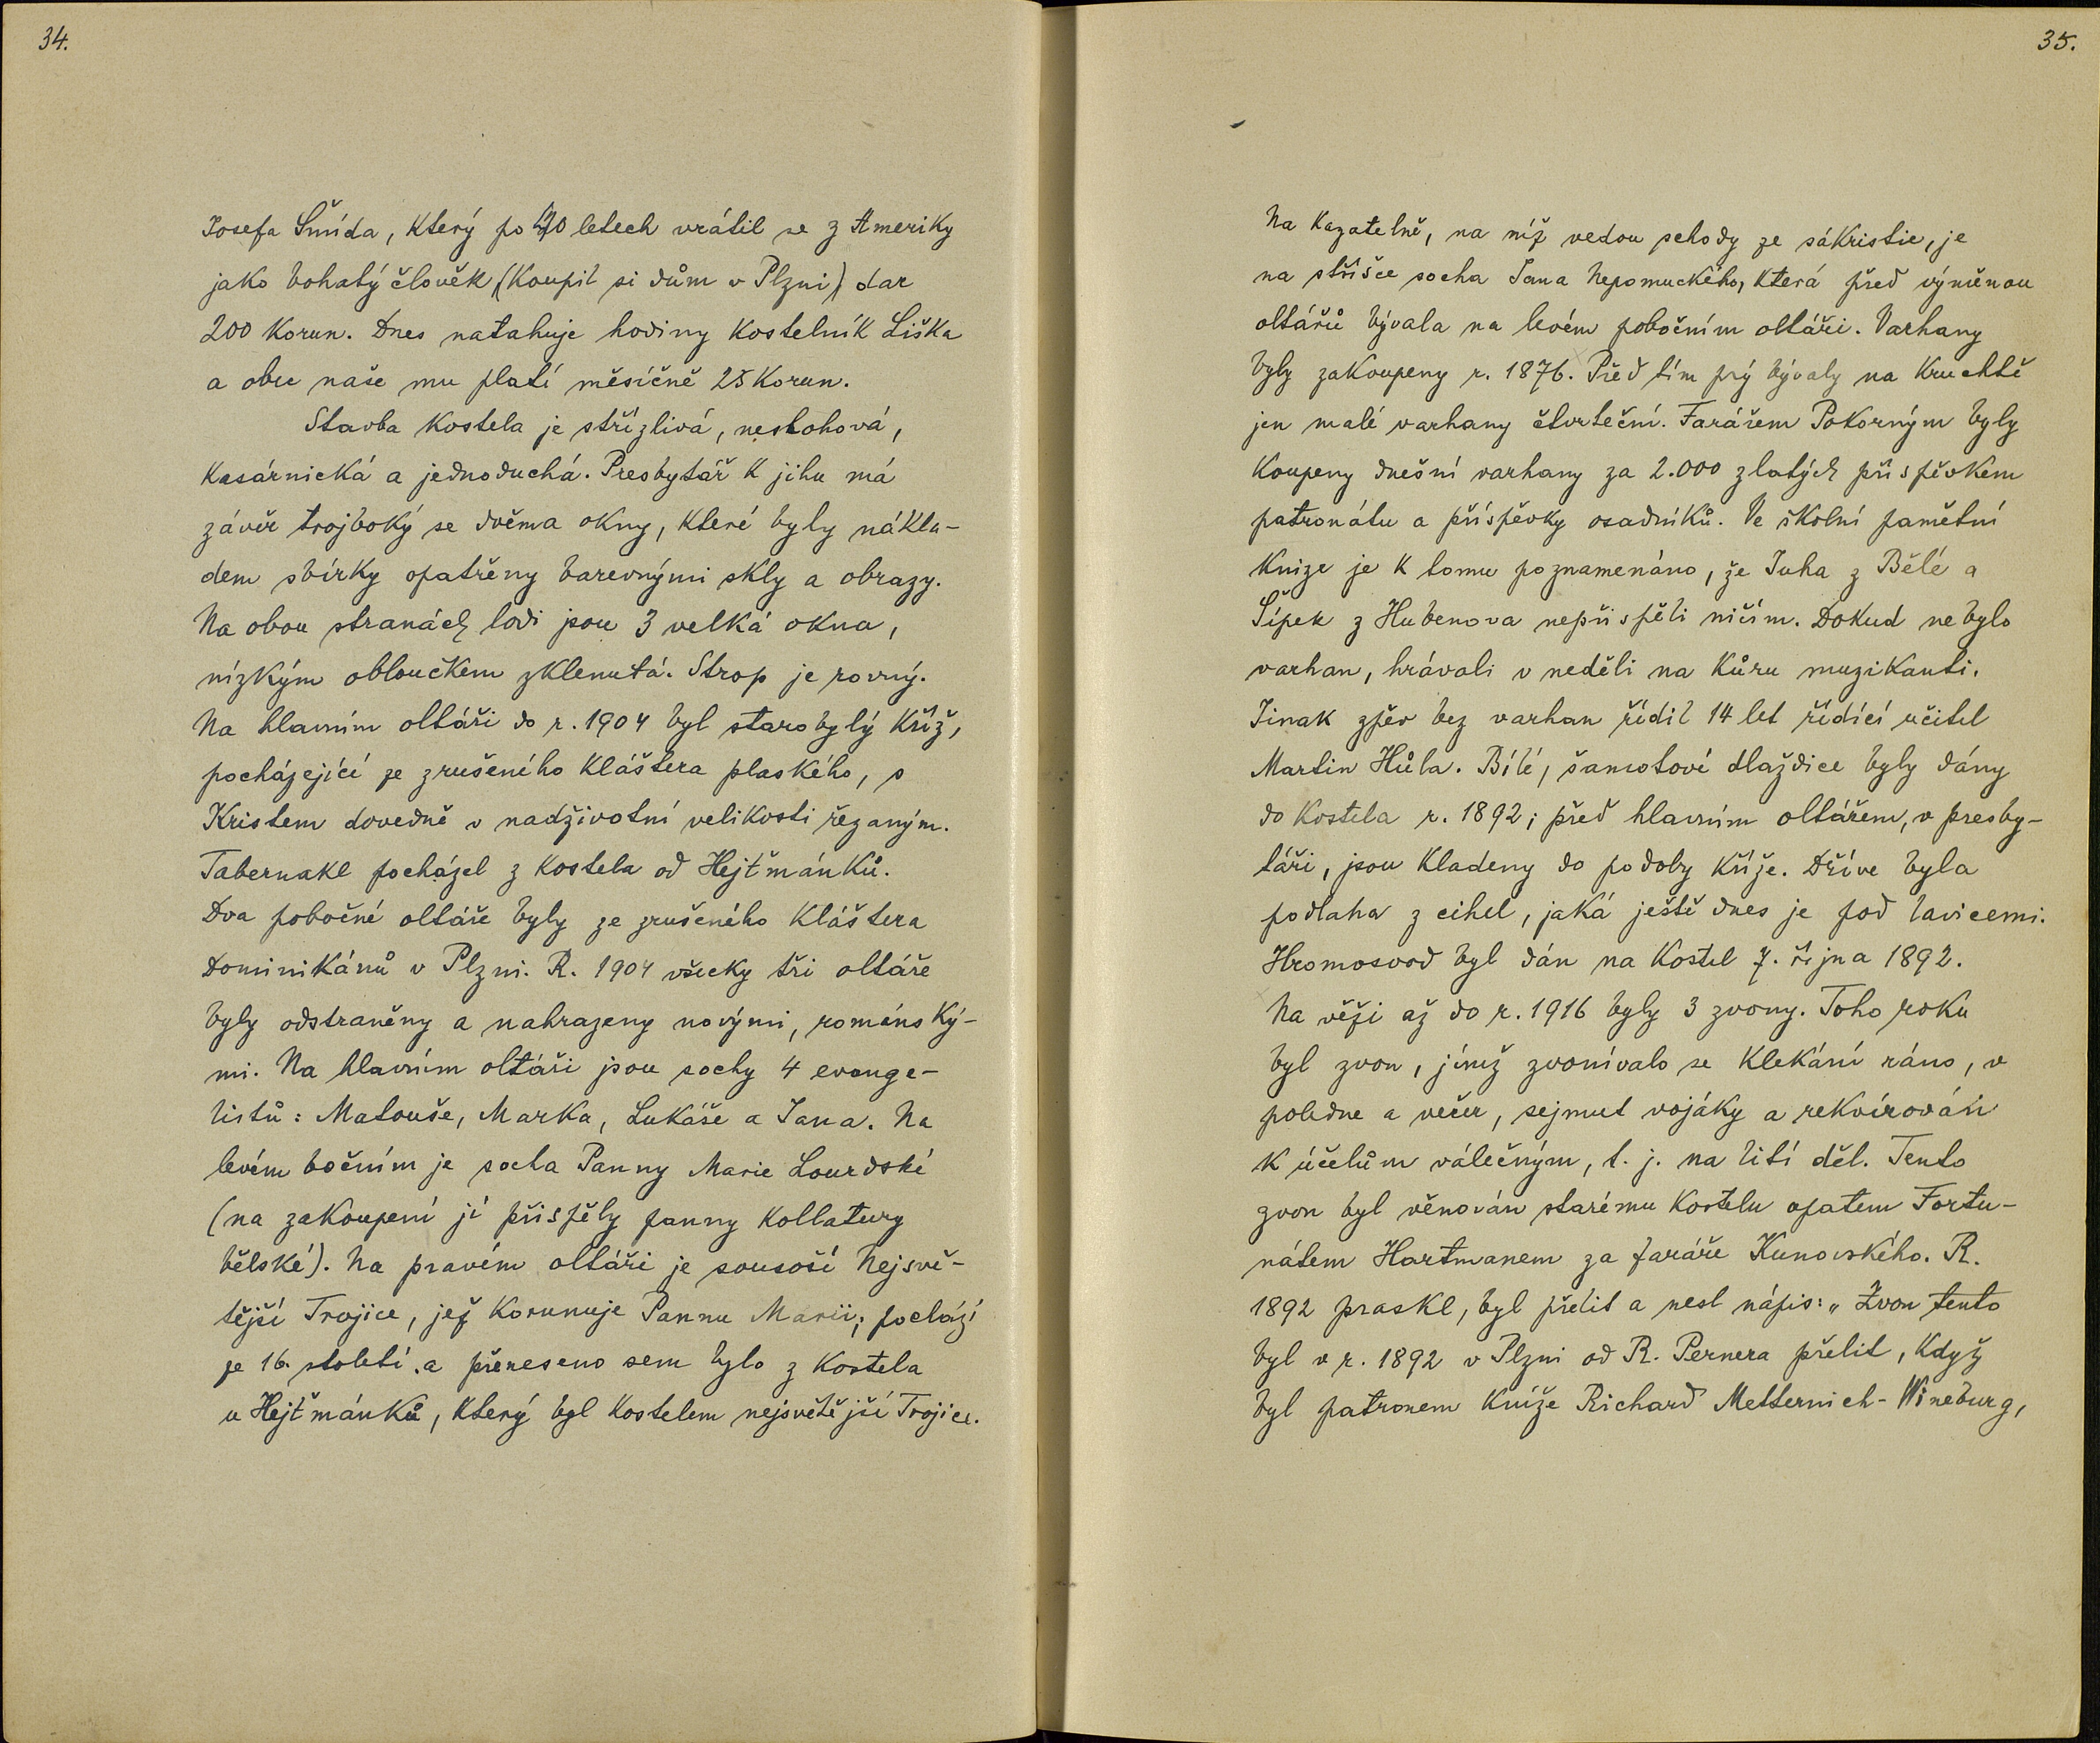 34.
Josefa Šmída, který po 40 letech vrátil se z Ameriky
jako bohatý člověk (koupil si dům v Plzni) dar
200 korun. Dnes natahuje hodiny kostelník Liška
a obec naše mu platí měsíčně 25 korun.
Stavba kostela je střízlivá, neslohová,
kasárnická a jednoduchá. Presbytář k jihu má
závěr trojboký se dvěma okny, které byly nákla-
dem sbírky opatřeny barevnými skly a obrazy.
Na obou stranách lodi jsou 3 velká okna,
nízkým obloučkem zklenutá. Strop je rovný.
Na hlavním oltáři do r. 1904 byl starobylý kříž,
pocházející ze zrušeného kláštera plaského, s
Kristem dovedně v nadživotní velikosti řezaným.
Tabernakl pocházel z kostela od Hejtmánků.
Dva pobočné oltáře byly ze zrušeného kláštera
Dominikánů v Plzni. R. 1904 všecky tři oltáře
byly odstraněny a nahrazeny novými, románský-
mi. Na hlavním oltáři jsou sochy 4 evange-
listů: Matouše, Marka, Lukáše a Jana. Na
levém bočním je socha Panny Marie Lourdské
(na zakoupení jí přispěly panny kollatury
bělské). Na pravém oltáři je sousoší Nejsvě-
tější Trojice, jež korunuje Pannu Marii; pochází
ze 16. století a přeneseno sem bylo z kostela
u Hejtmánků, který byl kostelem nejsvětější Trojice.
35.
Na kazatelně, na níž vedou schody ze sákristie, je
na stříšce socha Jana Nepomuckého, která před výměnou
oltářů bývala na levém pobočním oltáři. Varhany
byly zakoupeny r. 1876. Před tím prý bývaly na kruchtě
jen malé varhany čtvrteční. Farářem Pokorným byly
koupeny dnešní varhany za 2.000 zlatých příspěvkem
patronátu a příspěvky osadníků. Ve školní pamětní
knize je k tomu poznamenáno, že Juha z Bělé a
Šípek z Hubenova nepřispěli ničím. Dokud nebylo
varhan, hrávali v neděli na kůru muzikanti.
Jinak zpěv bez varhan řídil 14 let řídící učitel
Martin Hůla. Bílé, šamotové dlaždice byly dány
do kostela r. 1892; před hlavním oltářem, v presby-
táři, jsou kladeny do podoby kříže. Dříve byla
podlaha z cihel, jaká ještě dnes je pod lavicemi.
Hromosvod byl dán na kostel 7. října 1892.
Na věži až do r. 1916 byly 3 zvony. Toho roku
byl zvon, jímž zvonívalo se klekání ráno, v
poledne a večer, sejmut vojáky a rekvírován
k účelům válečným, t. j. na lití děl. Tento
zvon byl věnován starému kostelu opatem Fortu-
nátem Hartmanem za faráře Kunovského. R.
1892 praskl, byl přelit a nesl nápis: „Zvon tento
byl v r. 1892 v Plzni od R. Pernera přelit, když
byl patronem kníže Richard Metternich-Wineburg,